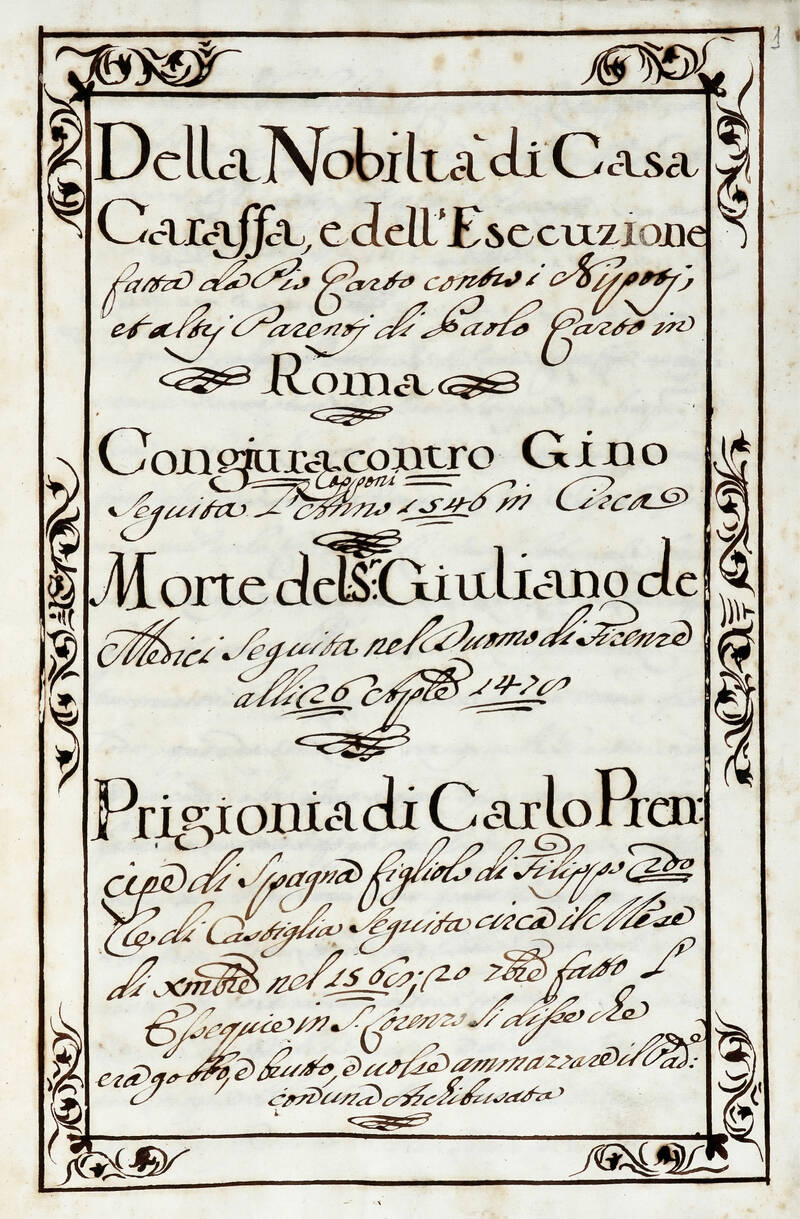 1
Della Nobiltà di Casa
Caraffa, e dell'Esecuzione
fatta da Pio Carto contro i Nipotj,
et altrj Parentj di Paolo Carto in
Roma
Congiura contro Gino
Capponi
Seguita L'Anno 1546 in Circa
Morte del Sr: Giuliano de
Medici Seguita nel Duomo di Firenze
alli 26 Aple 1478
Prigionia di Carlo Pren:
cipe di Spagna figliolo di Filippo 2do
Re di Castiglia Seguita circa il Mese
di xmbre nel 1568; 20 fatto L'
Essequie in S. Lorenzo Si disse che
era gobbo, e brutto, e volse ammazzare il Pade:
con una Archibusata